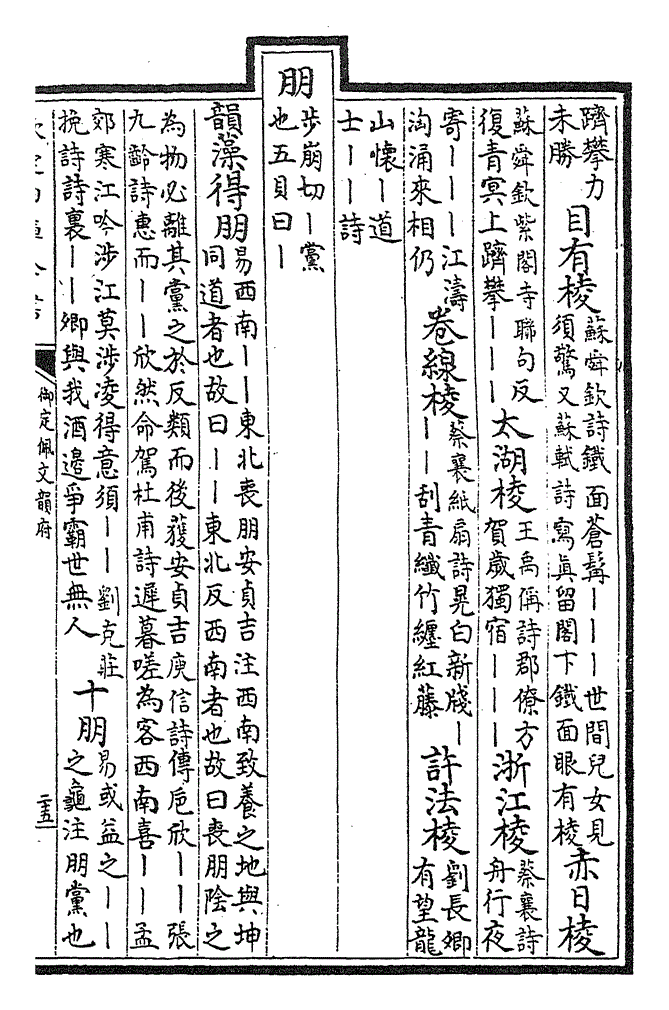 躋攀力
未勝
目有棱
蘇舜欽詩鐵面蒼髯丨丨丨世間兒女見
須驚又蘇軾詩寫真留閣下鐵面眼有棱
赤日棱
蘇舜欽紫閣寺聯句反
復青冥上躋攀丨丨丨
太湖棱
王禹偁詩郡僚方
賀歲獨宿丨丨丨
浙江棱
蔡襄詩
舟行夜
寄丨丨丨江濤
洶涌來相仍
卷線棱
蔡襄紙扇詩晃白新牋丨
丨丨刮青纖竹纏紅藤
許法棱
劉長卿
有望龍
山懷丨道
士丨丨詩
朋
步崩切丨黨
也五貝曰丨
韻藻得朋
易西南丨丨東北喪朋安貞吉注西南致養之地與坤
同道者也故曰丨丨東北反西南者也故曰喪朋陰之
為物必離其黨之於反類而後獲安貞吉庾信詩傳卮欣丨丨張
九齡詩惠而丨丨欣然命駕杜甫詩遲暮嗟為客西南喜丨丨孟
郊寒江吟涉江莫涉凌得意須丨丨劉克莊
挽詩詩裏丨丨卿與我酒邊爭霸世無人
十朋
易或益之丨丨
之龜注朋黨也
御定佩文韻府